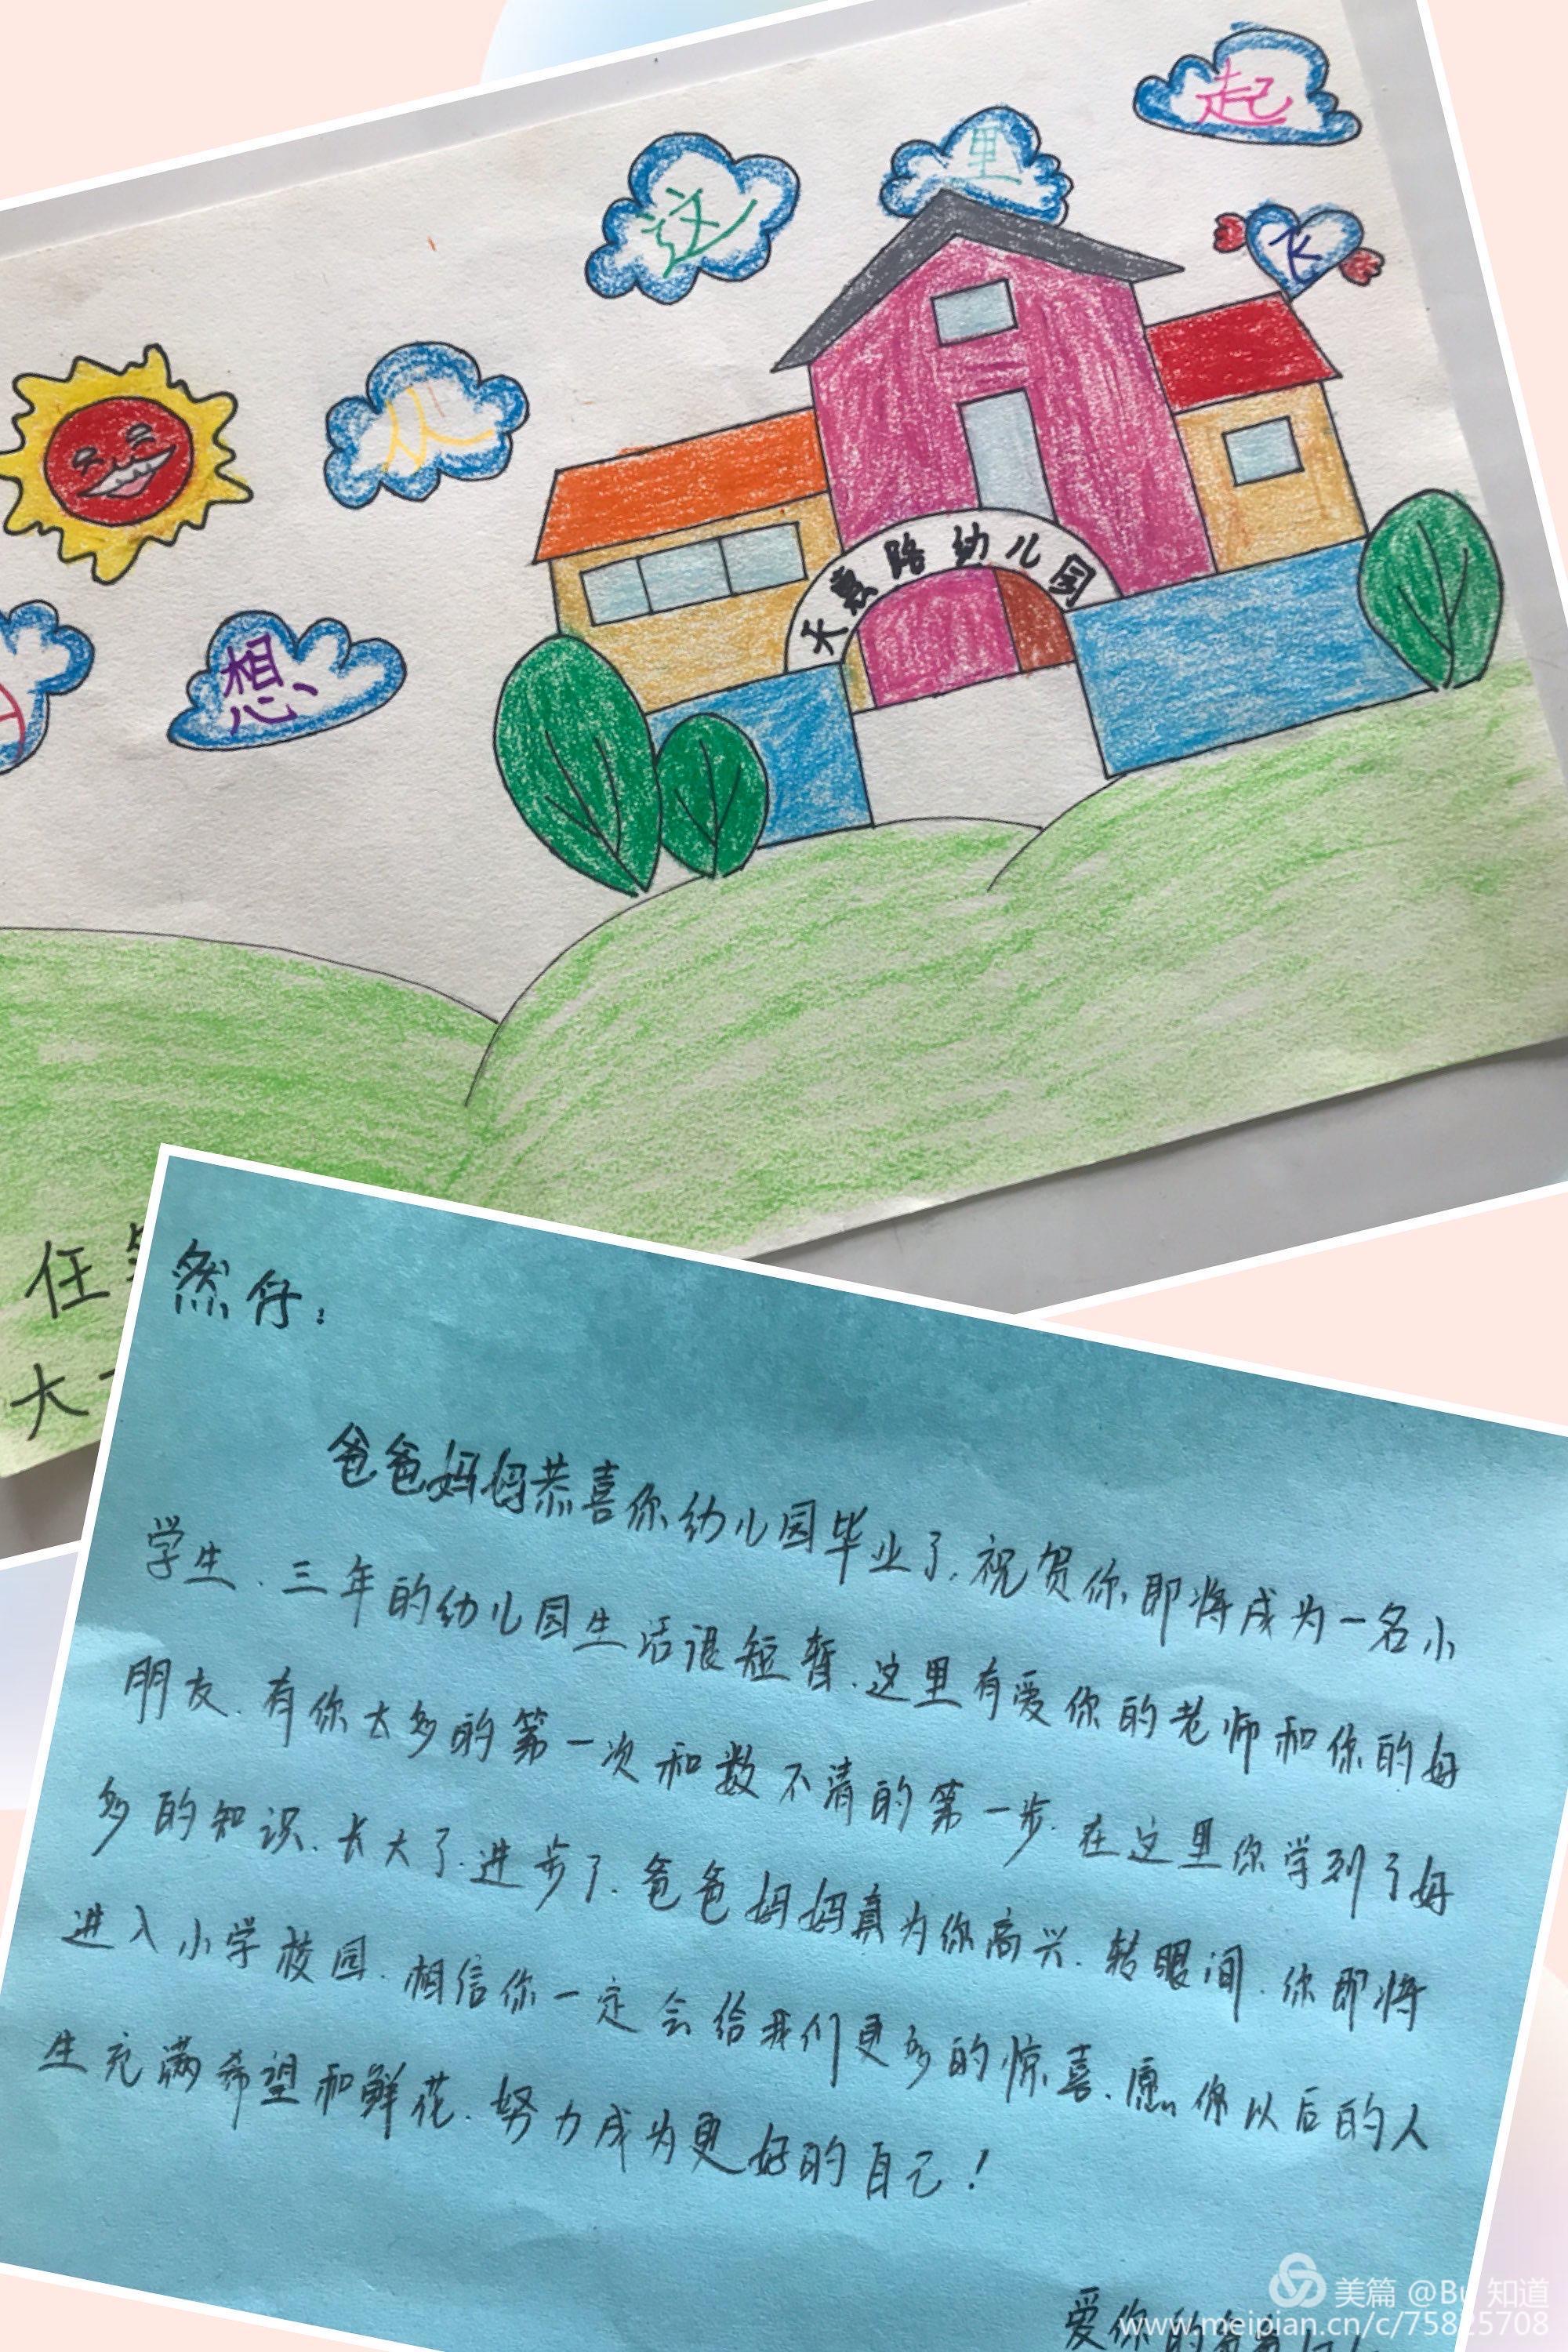 起
里
这
飞
从
想
天惠路幼儿园
任
大
然仔：
爸爸妈妈恭喜你幼儿园毕业了.祝贺你即将成为一名小
学生.三年的幼儿园生活很短暂.这里有爱你的老师和你的好
朋友.有你太多的第一次和数不清的第一步.在这里你学到了好
多的知识.长大了.进步了.爸爸妈妈真为你高兴.转眼间.你即将
进入小学校园.相信你一定会给我们更多的惊喜.愿你以后的人
生充满希望和鲜花.努力成为更好的自己！
爱你的爸爸
美篇 @Bu 知道
www.meipian.cn/c/75825708